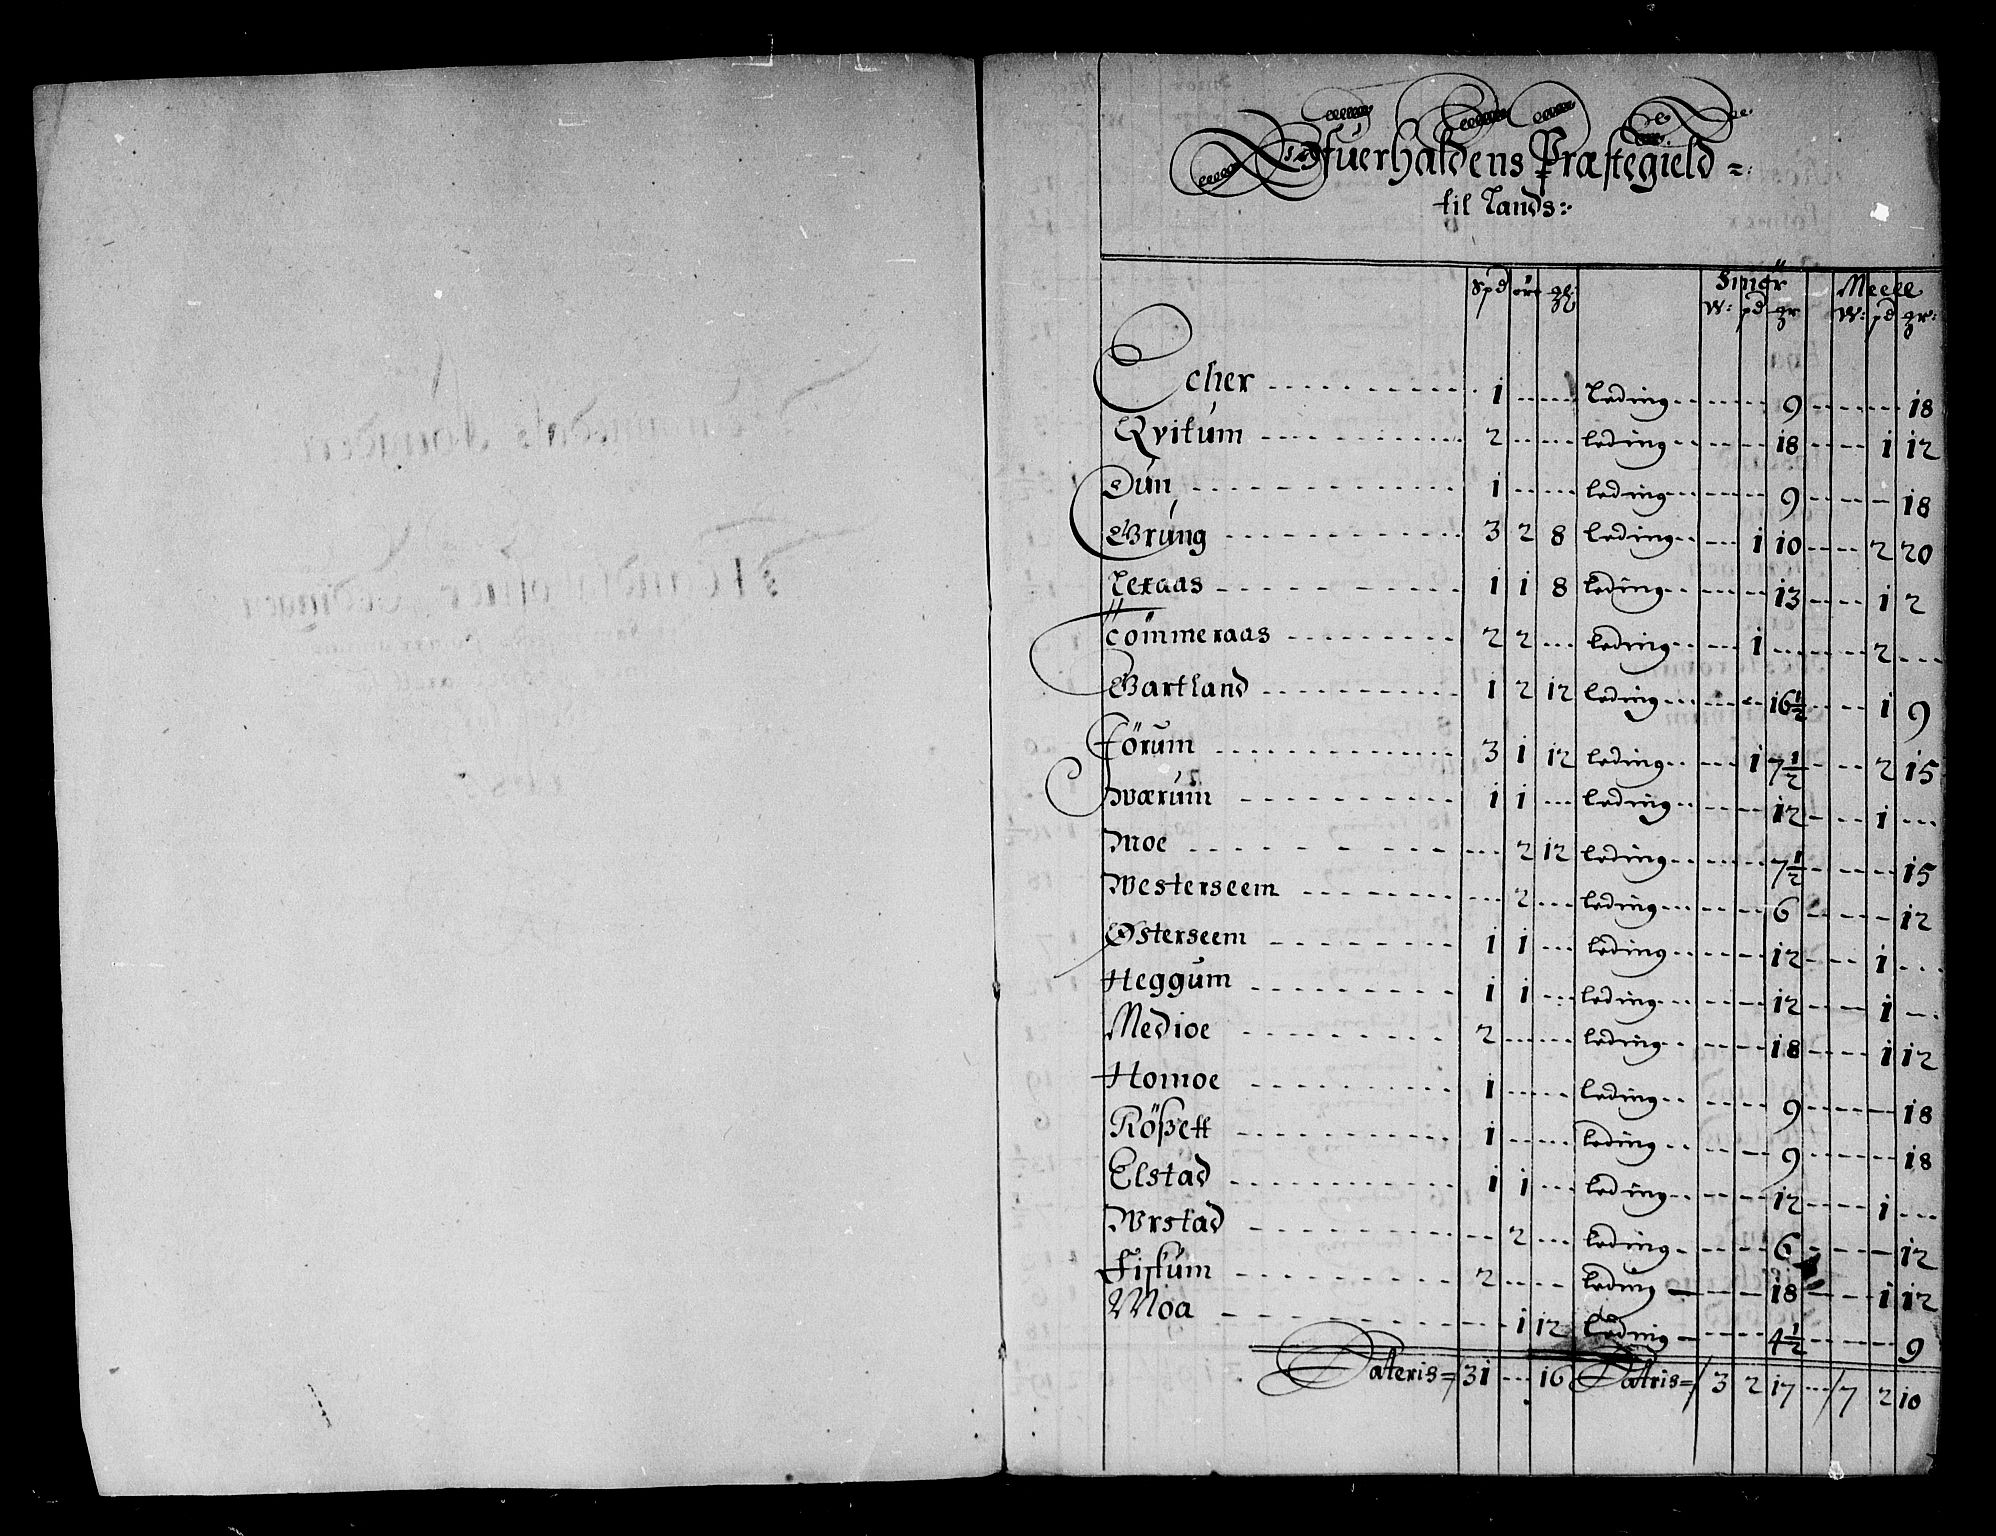 Ofuerhaldens Præstegield =:
til Lands:
Spd ører g
Smør Meell
W: pd gr W: pd gr:
Echer 1 leding 9 18
Qvitum 2 leding 18 1 12
Dun 1 leding 9 18
Grung 3 2 8 leding 1 10 2 20
Leraas 1 1 8 leding 13 1 2
Tömmeraas 2 2 leding 1 2
Gartland 1 2 12 leding 16½ 1 9
Förum 3 1 12 leding 1 7½ 2 15
Hværum 1 1 leding 12 1
Moe 2 12 leding 7½ 15
Westerseem 2 leding 6 12
Østerseem 1 1 leding 12 1
Heggum 1 1 leding 12 1
Medioe 2 leding 18 1 12
Homoe 1 leding 9 18
Rößett 1 leding 9 18
Elstad 1 1 leding 12 1
Wrstad 2 leding 6 12
Fiskum 2 leding 18 1 12
Moa 1 12 leding 4½ 9
Lateris = 31 16 Latris = 3 2 17 7 2 10